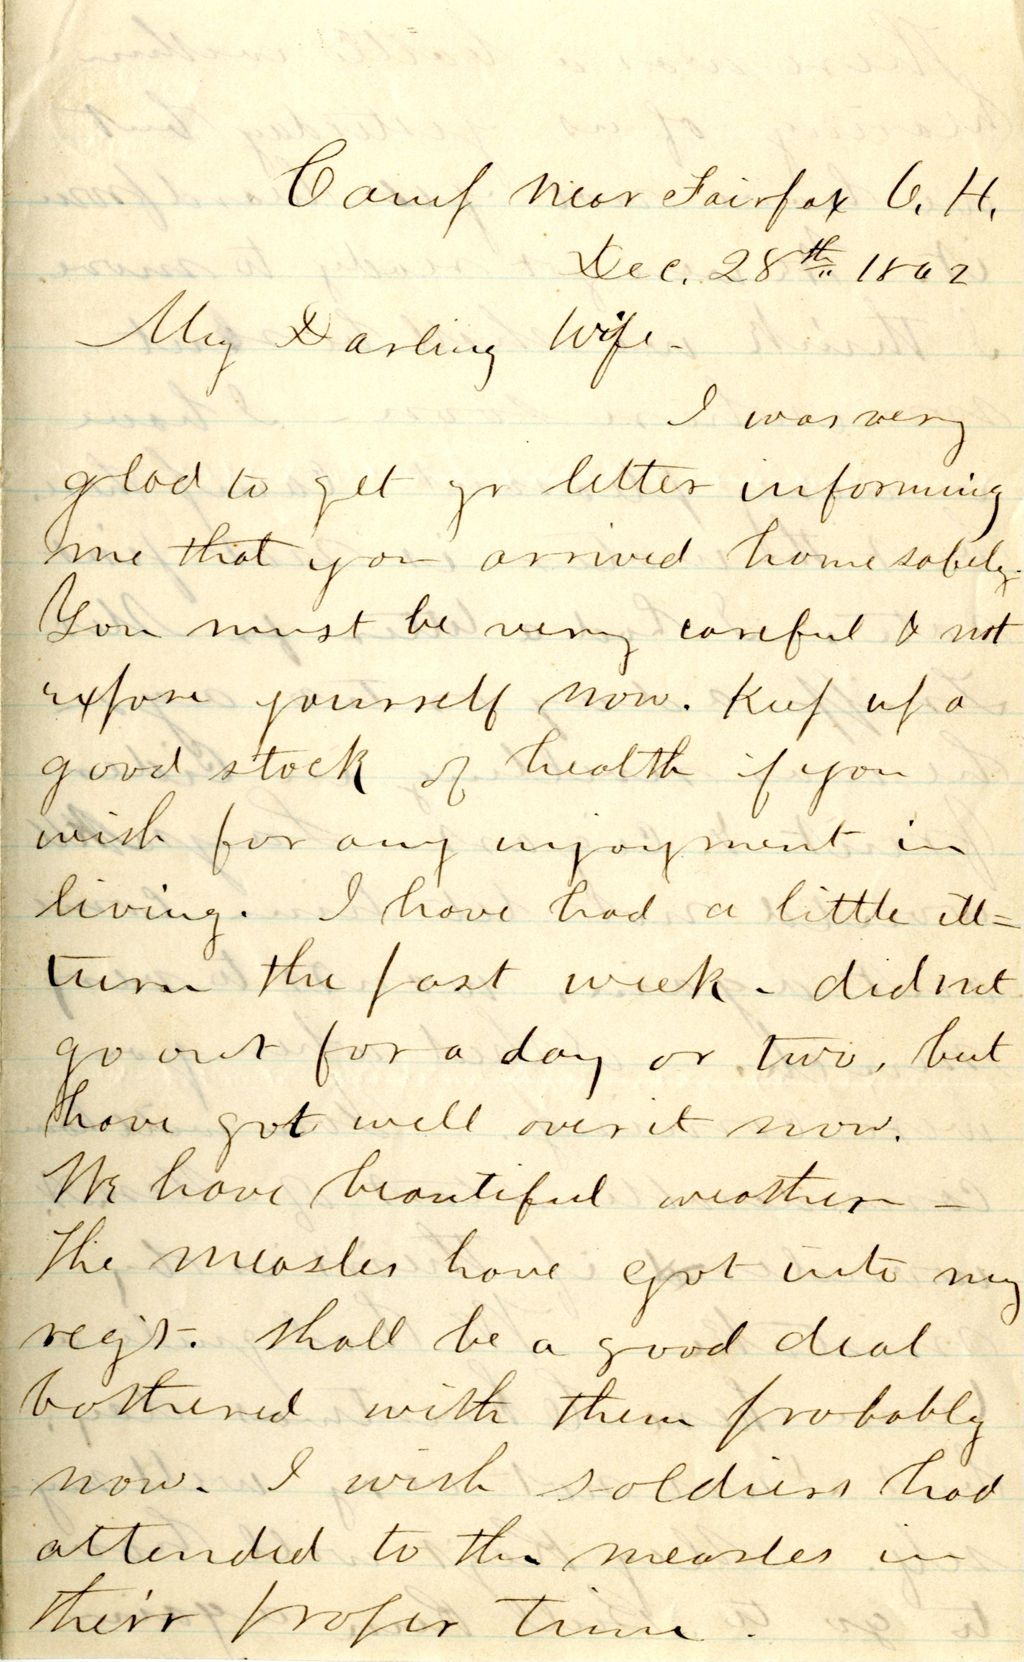 Camp Near Fairfax C. H.
Dec. 28th 1862
My Darling Wife -
I was very
glad to get yr letter informing
me that you arrived home safely.
You must be very careful & not
expose yourself now. Keep up a
good stock of health if you
wish for any enjoyment in
living. I have had a little ill=
turn the past week - did not
go out for a day or two, but
have got well over it now.
We have beautiful weather -
The measles have got into my
reg't. shall be a good deal
bothered with them probably
now. I wish soldiers had
attended to the measles in
their proper time.